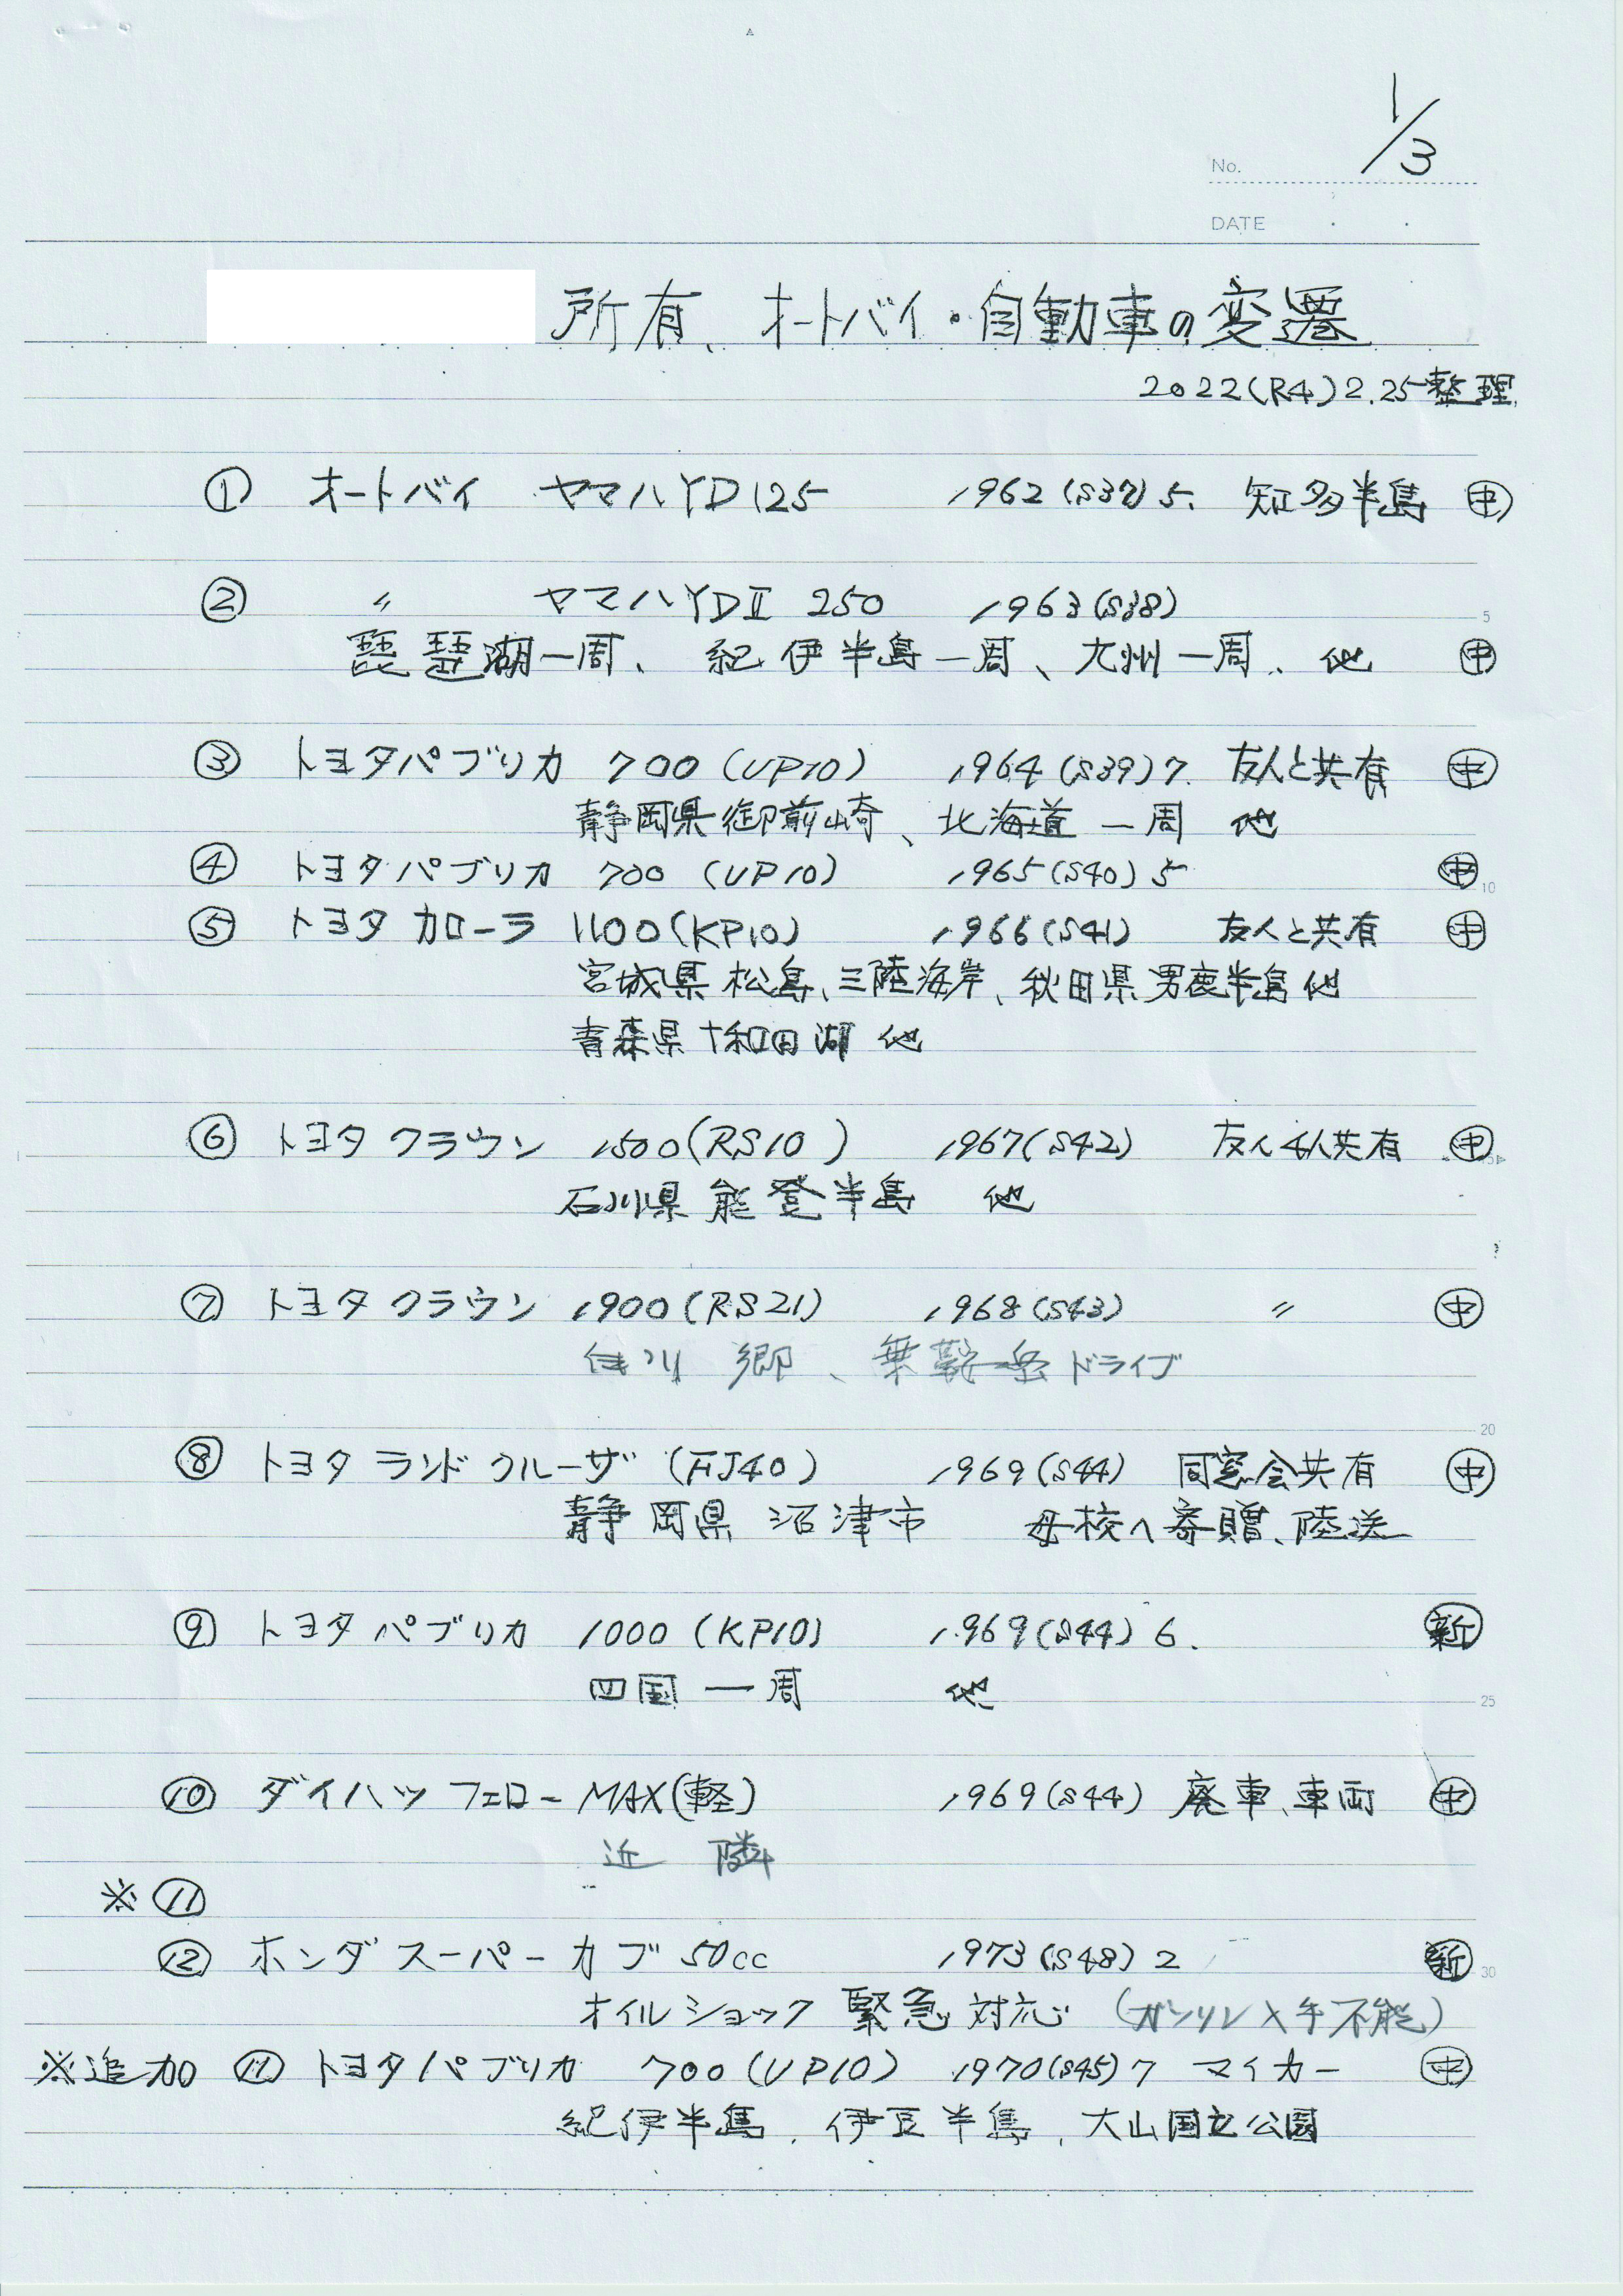 1/3
No.
DATE
所有、オートバイ・自動車の変遷
2022(R4)2.25整理
① オートバイ ヤマハYD125 1962(S37)5. 知多半島 ㊥
② 〃 ヤマハYDⅡ 250 1963(S38)
琵琶湖一周、紀伊半島一周、九州一周、他 ㊥
5
③ トヨタパブリカ 700(UP10) 1964(S39)7. 友人と共有 ㊥
静岡県御前崎、北海道一周 他
④ トヨタパブリカ 700(UP10) 1965(S40)5 ㊥
10
⑤ トヨタカローラ 1100(KP10) 1966(S41) 友人と共有 ㊥
宮城県松島、三陸海岸、秋田県男鹿半島他
青森県十和田湖 他
⑥ トヨタクラウン 1500(RS10) 1967(S42) 友人4人共有 ㊥
石川県能登半島 他
⑦ トヨタクラウン 1900(RS21) 1968(S43) 〃 ㊥
郷、乗鞍岳ドライブ
20
⑧ トヨタランドクルーザ (FJ40) 1969(S44) 同窓会共有 ㊥
静岡県沼津市 母校へ寄贈、陸送
⑨ トヨタパブリカ 1000(KP10) 1969(S44)6. ㊟新
四国一周 他
25
⑩ ダイハツフェローMAX(軽) 1969(S44) 廃車、車両 ㊥
近隣
※⑪
⑫ ホンダスーパーカブ50cc 1973(S48)2 新
30
オイルショック緊急対応 (ガソリン入手不能)
※追加 ⑪ トヨタパブリカ 700(UP10) 1970(S45)7 マイカー ㊥
紀伊半島、伊豆半島、大山国立公園